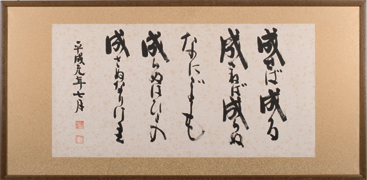 成せば成る
成さねば成らぬ
なにごとも
成らぬはひとの
成さぬなりけり
平成元年七月